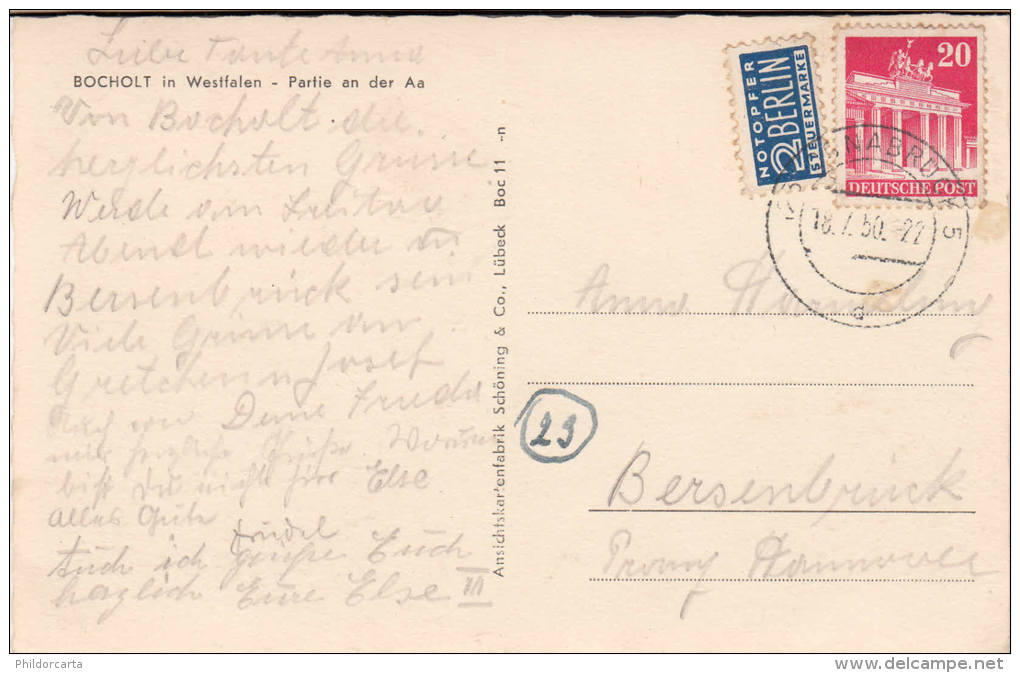 Liebe Tante Anna
BOCHOLT in Westfalen - Partie an der Aa
Von Bocholt die
herzlichsten Grüsse
Werde am Freitag
Abend wieder in
Bersenbrück sein
Viele Grüsse an
Gretchen u Josef
Deine Frieda
herzliche Grüße. Warum
bist Du nicht hier Else
alles Gute
Trudel
Auch ich grüße Euch
herzlich Eure Else III
Ansichtskartenfabrik Schöning & Co., Lübeck Boc 11 -n
NOTOPFER
2 BERLIN
STEUERMARKE
20
DEUTSCHE POST
OSNABRÜCK 5
18.7.50.-22
d
Anna
23
Bersenbrück
Prov Hannover
Phildorcarta
delcampe.net